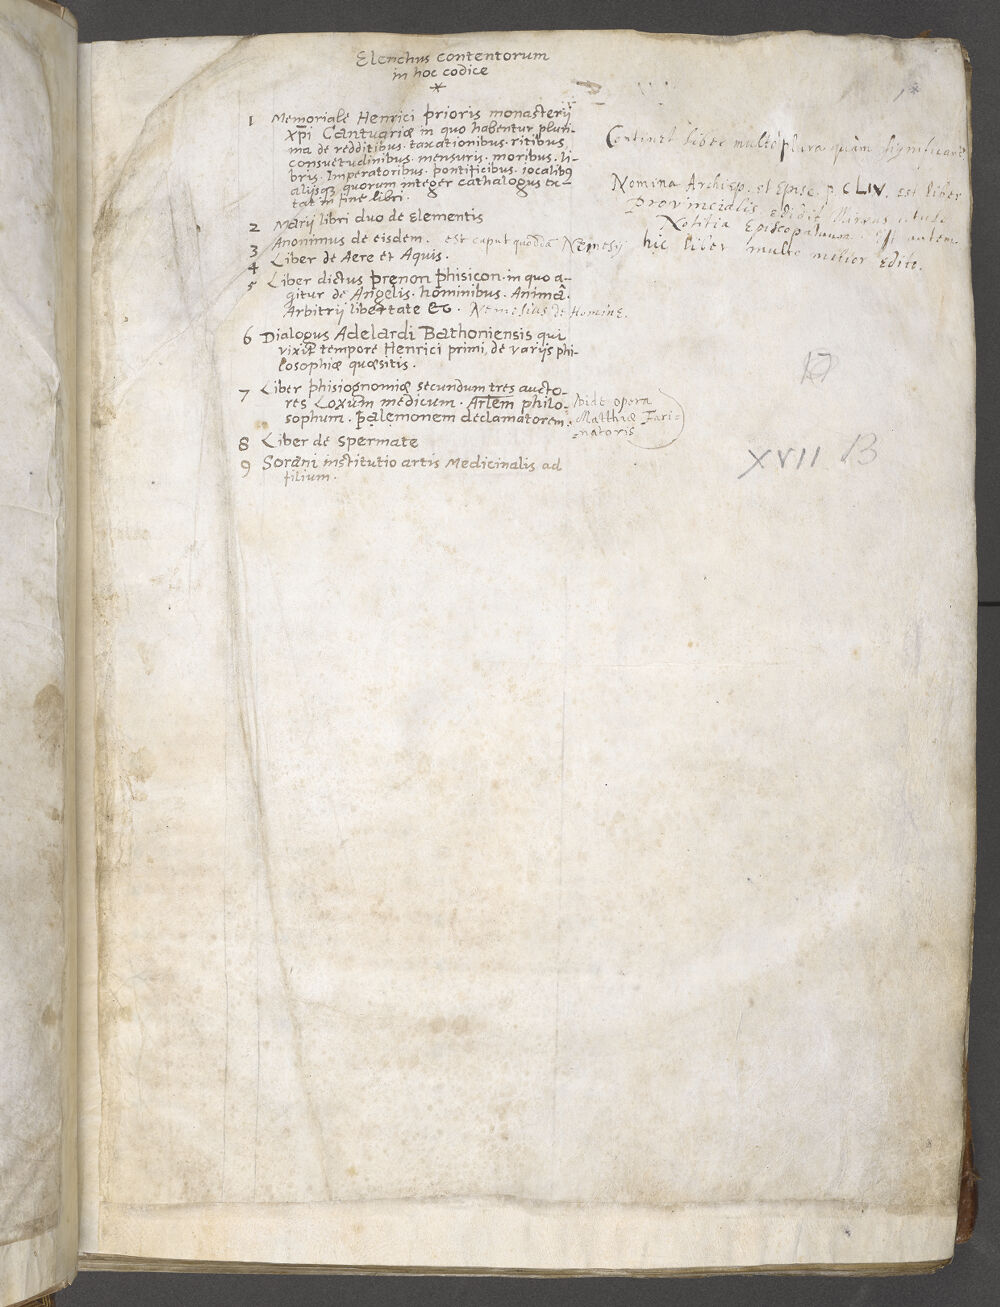 Elenchus contentorum
in hoc codice
*
1 Memoriale Henrici prioris monasterij
xp̄i Cantuariæ in quo habentur pluri-
ma de redditibus · taxationibus · ritibus
consuetudinibus · mensuris · moribus · li-
bris · Imperatoribus · pontificibus · iocalibꝰ
alijsqꝫ quorum integer cathalogus ex-
tat in fine libri ·
2 Marij libri duo de Elementis
3 Anonimus de eisdem · est caput quoddā Nemesij
4 Liber de Aere et Aquis ·
5 Liber dictus prenon phisicon · in quo a-
gitur de Angelis · hominibus · Animâ ·
Arbitrij libertate &c · Nemesius de Homine ·
6 Dialogus Adelardi Bathoniensis qui
vixit tempore Henrici primi, de varijs phi-
losophiæ quæsitis ·
7 Liber phisiognomiæ secundum tres aucto-
res Loxum medicum · Arlem̄ philo-
sophum · palemonem declamatorem ·
vide opera
Matthiæ Fari-
natoris
8 Liber de Spermate
9 Sorani institutio artis Medicinalis ad
filium ·
Continet liber multò plura quàm significant
Nomina Archiep. et Episc. p. CLIV. est liber
Provincialis edidit Miræus
Notitia Episcopatuum. autem
hic liber multo melior edito.
XVII 13